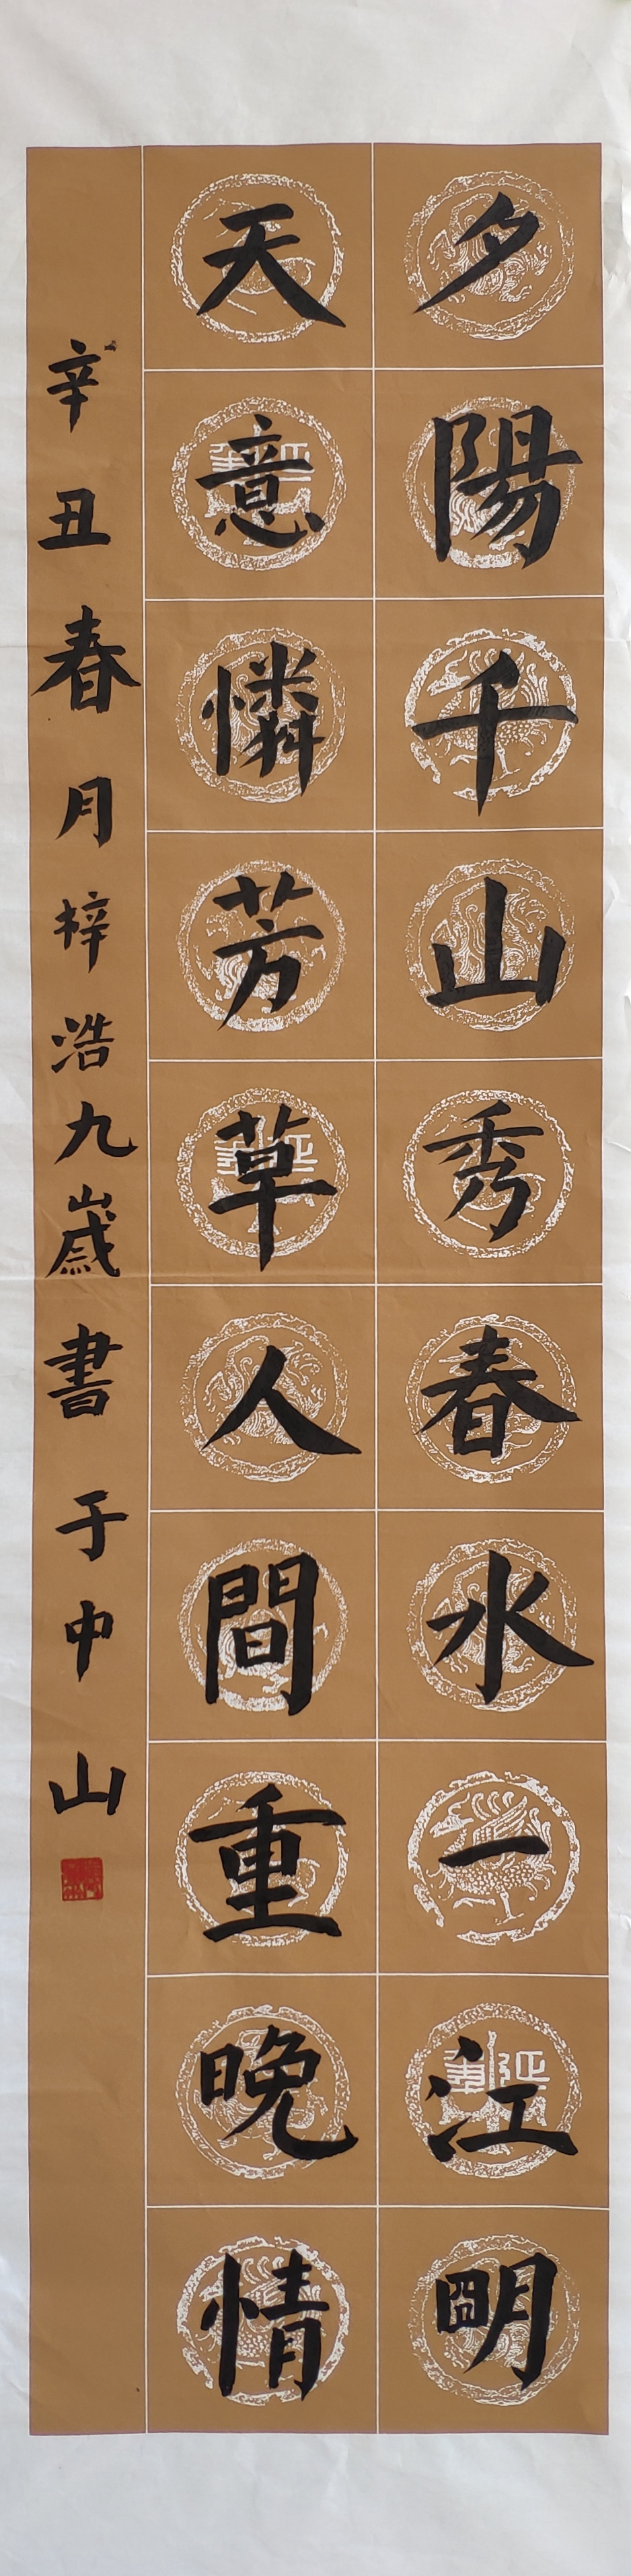 夕陽千山秀春水一江明
天意憐芳草人間重晚情
辛丑春月梓浩九歲書于中山